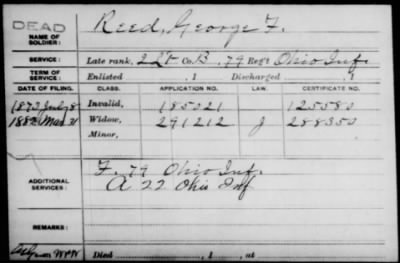 DEAD
NAME OF SOLDIER: Reed, George F.
SERVICE: Late rank, 2 Lt Co. B, 79 Reg't Ohio Inf.
TERM OF SERVICE: Enlisted , 1 Discharged , 1
DATE OF FILING. CLASS. APPLICATION NO. LAW. CERTIFICATE NO.
1873 July 8 Invalid, 185021 125580
1882 Mar 31 Widow, 291212 J 288350
Minor,
ADDITIONAL SERVICES: F. 79 Ohio Inf.
A 22 Ohio Inf
REMARKS:
Died , 1 , at